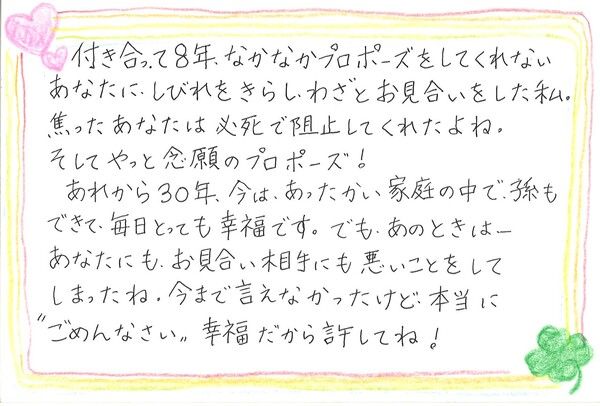 付き合って8年、なかなかプロポーズをしてくれない
あなたに、しびれをきらし、わざとお見合いをした私。
焦ったあなたは必死で阻止してくれたよね。
そしてやっと念願のプロポーズ!
あれから30年、今は、あったかい家庭の中で、孫も
できて、毎日とっても幸福です。でも、あのときは―
あなたにも、お見合い相手にも悪いことをして
しまったね。今まで言えなかったけど、本当に
"ごめんなさい" 幸福だから許してね!